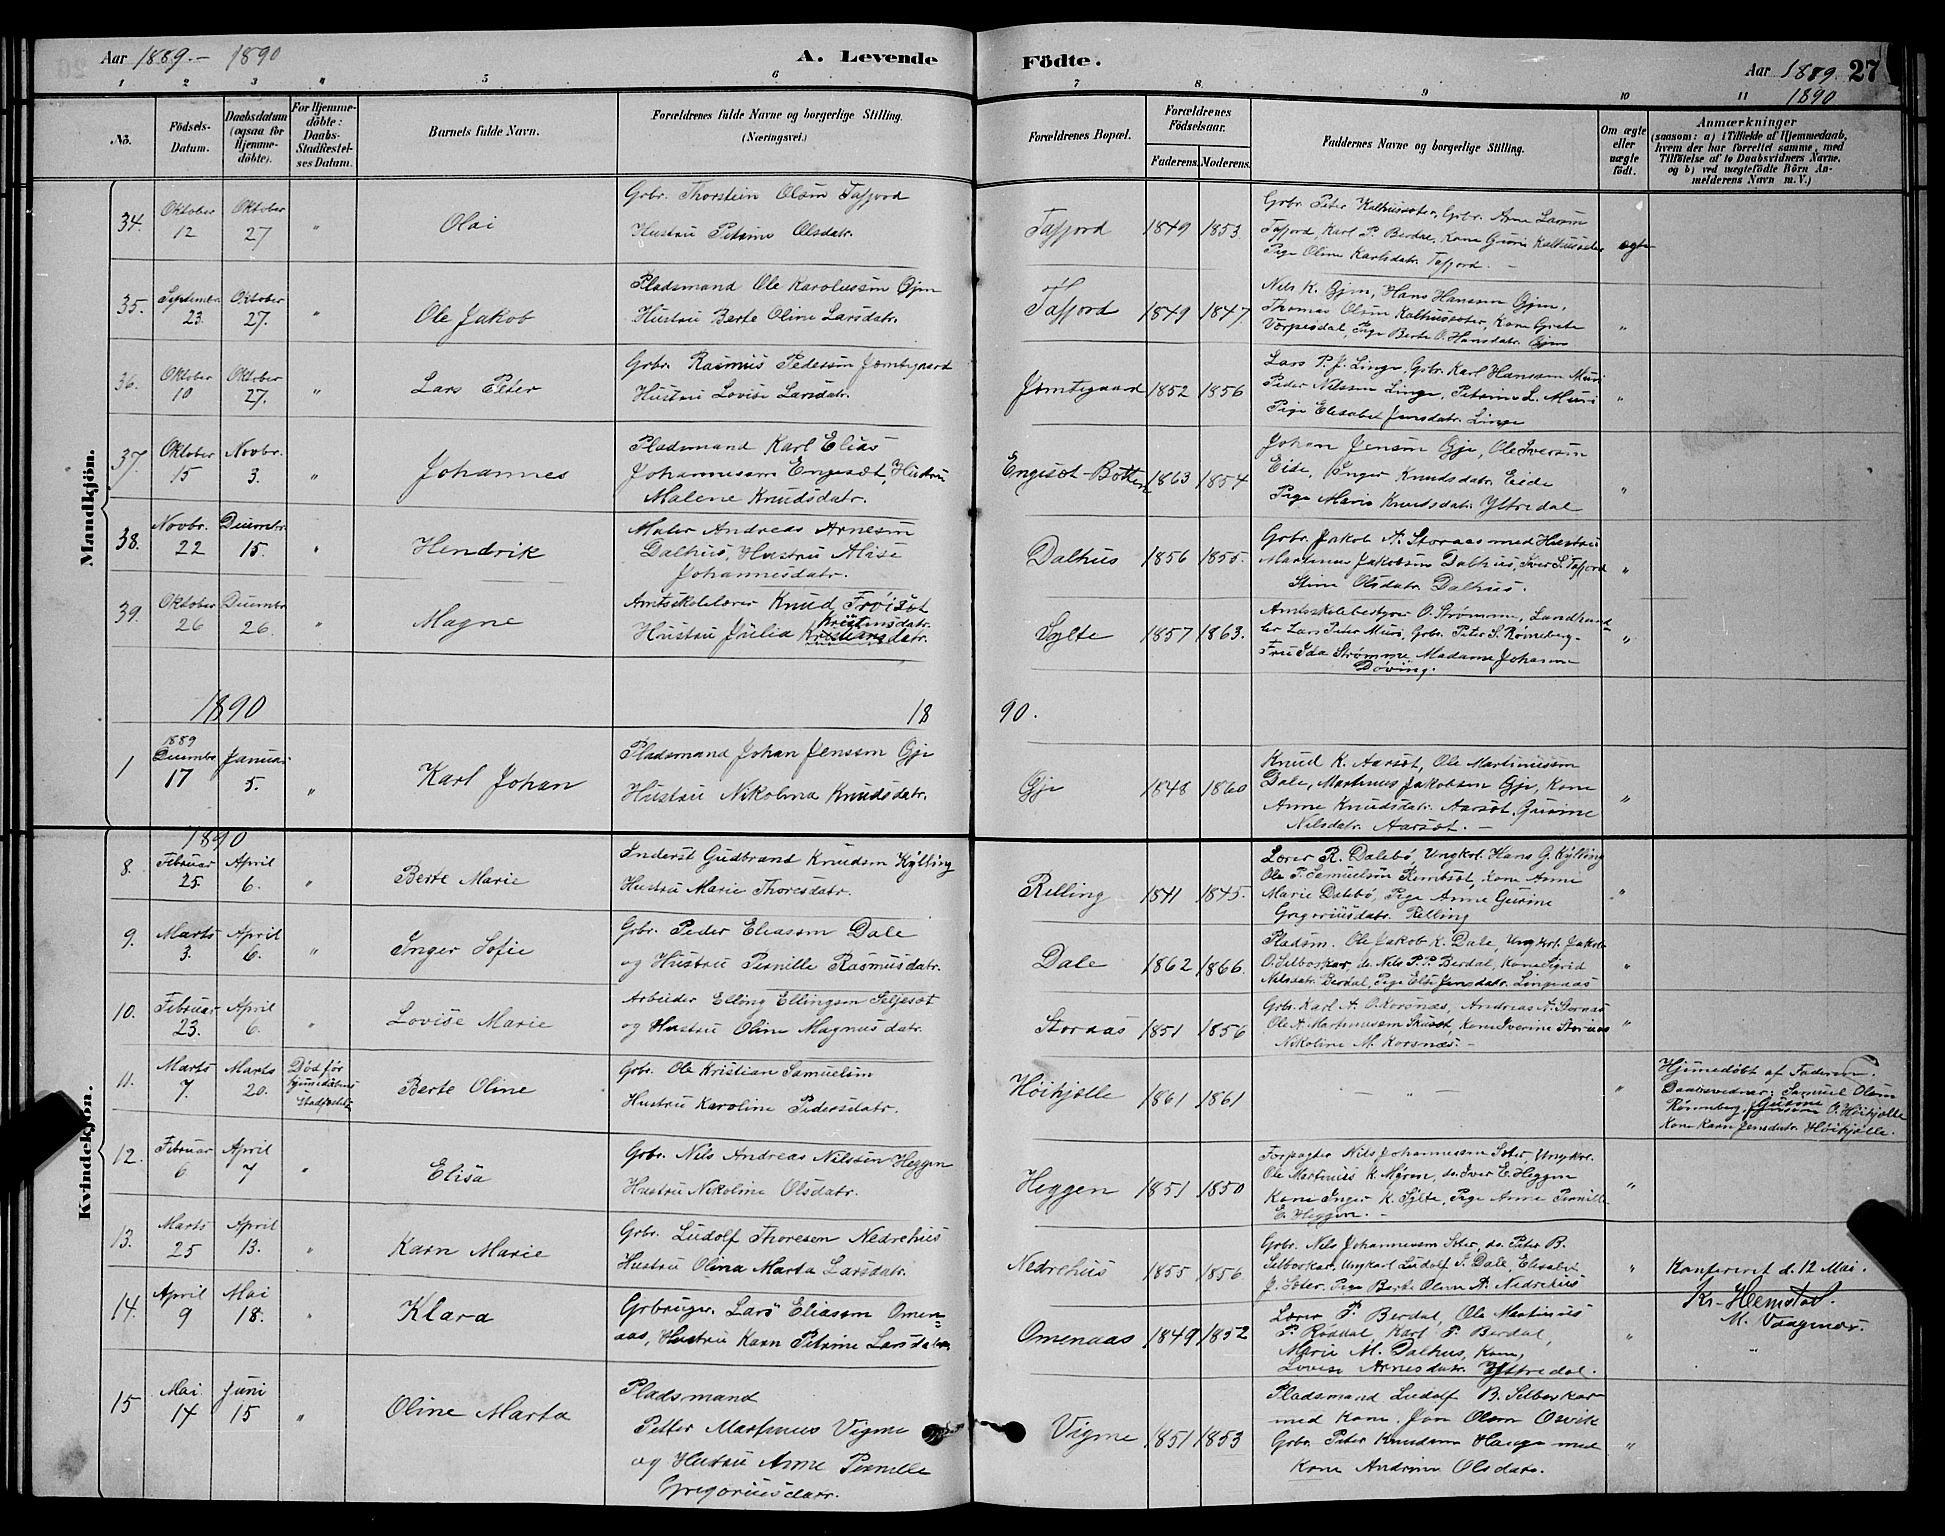 Aar 1889 – 1890
A. Levende
Födte.
Aar 1889. 27
1890
1 2 3 " 5 6 7 8 9 10 11
Nö.
Födsels-
Datum.
Daabsdatum
(ogsaa for
Hjemme-
döbte).
For Hjemme-
döbte:
Daabs-
Stadfæstel-
ses Datum.
Barnets fulde Navn.
Forældrenes fulde Navne og borgerlige Stilling.
(Næringsvei.)
Forældrenes Bopæl.
Forældrenes
Födselsaar.
Faderens. Moderens.
Faddernes Navne og borgerlige Stilling.
Om ægte
eller
uægte
födt.
Anmærkninger
(saasom: a) i Tilfælde af Hjemmedaab,
hvem der har forrettet samme, med
Tilföielse af to Daabsvidners Navne,
og b) ved uægtefödte Börn An-
melderens Navn m. V.)
Mandkjön.
34. Oktober 12 Oktober 27 " Olai
Grbr. Thorstein Olsen Tafjord
Hustru Petrine Olsdatr.
Tafjord 1849 1853.
Grbr. Peter Kalhussæter, Grbr. Arne Larsen
Tafjord, Karl P. Berdal, Kone Kalhussæter
Pige Oline Karlsdatr. Tafjord. –
ægte
35. Septembr. 23. Oktober 27. " Ole Jakob
Pladsmand Ole Karolussen Gjen
Hustru Berte Oline Larsdatr.
Tafjord 1849 1847.
Nils K. Gjen, Hans Hansen Gjen,
Thomas Olsen Kalhussæter, Kone Grete
Pige Berte O. Hansdatr. Gjen
"
36. Oktober 10 Oktober 27. " Lars Peter
Grbr. Rasmus Pedersen Jemtegaard
Hustru Lovise Larsdatr.
Jemtegaard 1852 1856
Lars P. J. Linge, Grbr. Karl Hansen Muri
Peder Nilssen Linge, Petrine L. Muri
Pige Elisabet Jensdatr. Linge
"
37. Oktober 15 Novbr. 3. " Johannes
Pladsmand Karl Elias
Johannessen Engesæt, Hustru
Malene Knudsdatr.
Engesæt-Botten 1863 1854
Johan Jensen Gje, Ole Iversen
Eide, Inger Knudsdatr. Eide
Pige Marie Knudsdatr. Yttredal
"
38. Novbr. 22 Decembr. 15. " Hendrik
Maler Andreas Arnesen
Dalhus, Hustru Alise
Johannesdatr.
Dalhus 1856 1855.
Grbr. Jakob A. Storaas med Hustru
Martinus Jakobsen Dalhus, Iver S. Tafjord
Stine Olsdatr. Dalhus.
"
39. Oktober 26 Decembr. 26. " Magne
Amtsskolelærer Knud Frøisæt
Kristensdatr.
Hustru Julia Kristiansdatr.
Sylte 1857 1863.
Amtsskolebestyrer O. Strømme, Landhand-
ler Lars Peter Muri, Grbr. Peter S. Rønneberg
Fru Ida Strømme, Madame Johanne
Døving.
"
1890 18 90.
1 1889 Decembr. 17 Januar 5. " Karl Johan
Pladsmand Johan Jenssen Gje
Hustru Nikolina Knudsdatr.
Gje 1848 1860
Knud K. Aarsæt, Ole Martinussen
Dale, Martinus Jakobsen Gje, Kone
Anne Knudsdatr. Aarsæt, Gurine
Nilsdatr. Aarsæt. –
"
Kvindekjön.
1890
8. Februar 25. April 6. " Berte Marie
Inderst Gudbrand Knudsen Kylling
Hustru Marie Thoresdatr.
Relling 1841 1845.
Lærer R. Dalebø, Ungkrl. Hans G. Kylling
Ole P. Samuelsen Remtsæt, Kone Anne
Marie Dalebø, Pige Anne Gurine
Gregoriusdatr. Relling
"
9. Marts 3. April 6. " Inger Sofie
Grbr. Peder Eliassen Dale
og Hustru Pernille Rasmusdatr.
Dale 1862 1866.
Pladsm. Ole Jakob K. Dale, Ungkrl. Jakob
O. Selboskar, do. Nils P. P. Berdal, Kone Sigrid
Nilsdatr. Berdal, Pige Else Jensdatr. Lingeaas
"
10. Februar 23. April 6. " Lovise Marie
Arbeider Elling Ellingsen Seljesæt
og Hustru Oline Magnusdatr.
Storaas 1851 1856
Grbr. Karl A. O. Korsnæs, Andreas A. Storaas
Ole A. Martinussen Kone Iverine Storaas
Nikoline M. Korsnæs. –
"
11. Marts 7. Marts 20. Død før
hjemdaabens
Stadfæstelse Berte Oline
Grbr. Ole Kristian Samuelsen
Hustru Karoline Pedersdatr.
Høikjølle 1861 1861 – " – "
Hjemedøbt af Faderen.
Daabsvidner: Samuel Olsen
Rønneberg, Gurine O. Høikjølle
Kone Karn Jensdatr. Høikjølle.
12. Februar 6 April 7 " Elisa
Grbr. Nils Andreas Nilssen Heggen
Hustru Nikoline Olsdatr.
Heggen 1851 1850
Forpagter Nils Johannessen Sæter, Ungkrl.
Ole Martinus K. do. Iver E. Heggen
Kone Inger K. Sylte, Pige Anne Pernille
E. Heggen. –
"
13. Marts 25 April 13. " Karn Marie
Grbr. Ludolf Thoresen Nedrehus
Hustru Olina Marta Larsdatr.
Nedrehus 1855 1856.
Grbr. Nils Johannessen Sæter, do. Peter B.
Selboskar, Ungkarl Ludolf I. Dale, Elisabet
J. Sæter, Pige Berte Oline A. Nedrehus
"
Konfereret d. 12 Mai.
Kr. Hemstad.
M. Vaagnæs.
14. April 9 Mai 18. " Klara
Grbruger. Lars Eliassen Omen=
aas, Hustru Karn Petrine Larsdatr.
Omenaas 1849 1852
Lærer P. Berdal, Ole Martinus
P. Rødal, Karl P. Berdal,
Marie M. Dalhus, Kone,
Lovise Arnesdatr. Yttredal.
" "
15 Mai 14 Juni 15 " Oline Marta
Pladsmand
Petter Martinus Vigme
og Hustru Anne Pernille
Gregoriusdatr.
Vigme 1851 1853
Pladsmand Ludolf B. Selboskar
med Kone. Jon Olsen Osvik
Grbr. Peter Knudsen Hauge med
Kone Andrine Olsdatr.
"